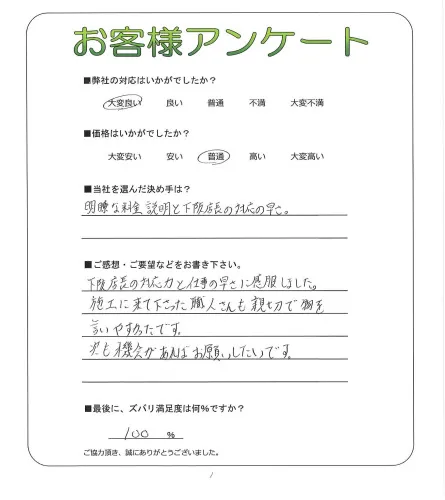 お客様アンケート
■弊社の対応はいかがでしたか？
大変良い 良い 普通 不満 大変不満
■価格はいかがでしたか？
大変安い 安い 普通 高い 大変高い
■当社を選んだ決め手は？
明瞭な料金説明と下段店長の対応の早さ。
■ご感想・ご要望などをお書き下さい。
下段店長の対応力と仕事の早さに感服しました。
施工に来て下さった職人さんも親切で物を
言いやすかったです。
次も機会があればお願いしたいです。
■最後に、ズバリ満足度は何％ですか？
100 %
ご協力頂き、誠にありがとうございました。